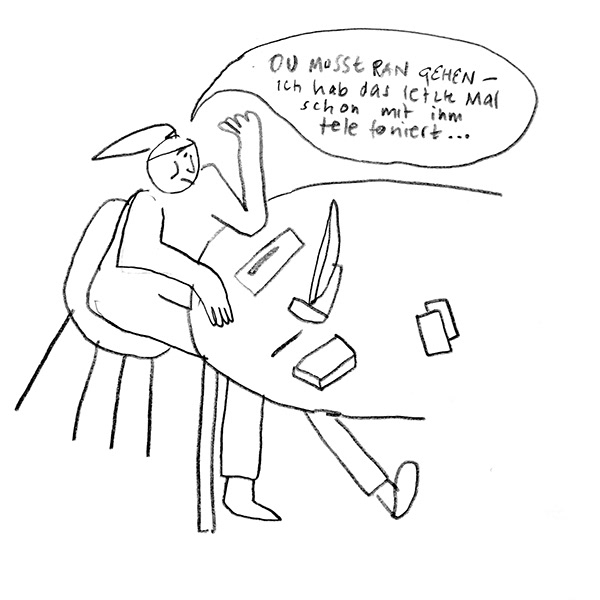 DU MUSST RAN GEHEN –
ich hab das letzte Mal
schon mit ihm
tele foniert...